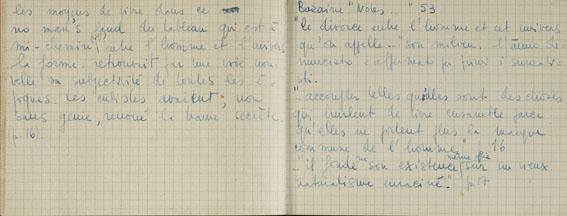 les moyens de livre dans ce
no man's land du tableau qui est à
mi-chemin entre l'homme et l'univers
la forme retrouvait par une voie nou-
velle sa subjectivité de toutes les é-
poques. Les cubistes avaient, non
sans génie, renoué la trame secrète.
(p. 16).
Bazaine "Notes..." 53
"Le divorce entre l'homme et cet univers
qu'on appelle "son milieu.
sti.
"..accoupler telles qu'elles sont des choses
qui hurlent de vivre ensemble parce
qu'elles ne portent plus la marque
commune de l'homme" 16
"..il fonde son existence même sur un vieux
naturalisme enraciné." p. 17